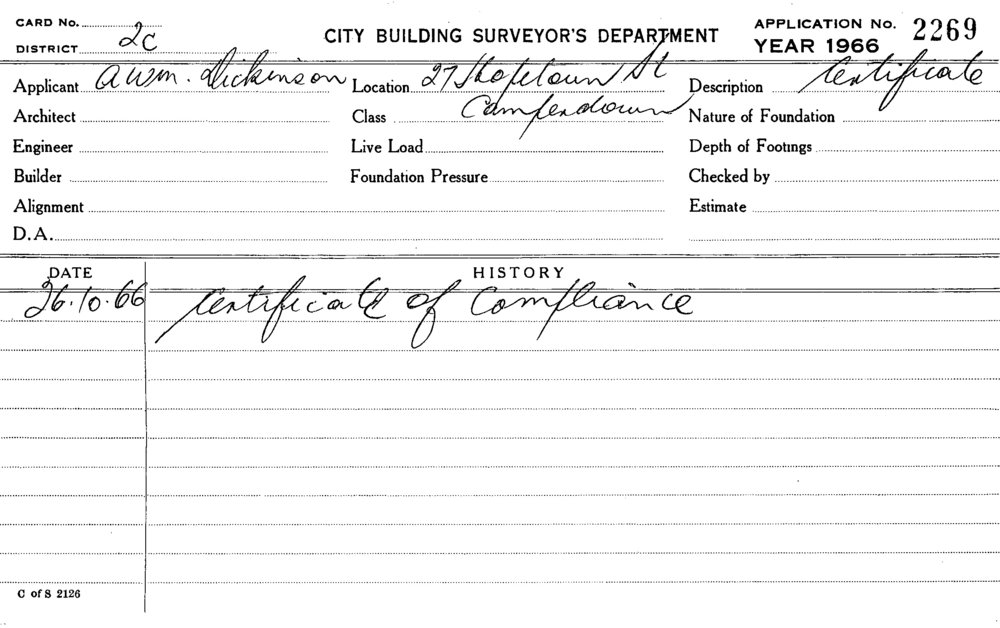 CARD No. CITY BUILDING SURVEYOR'S DEPARTMENT APPLICATION No. 2269
DISTRICT 2C YEAR 1966
Applicant A.W.M. Dickinson Location 27 Hopetoun St Description Certificate
Architect Class Camperdown Nature of Foundation
Engineer Live Load Depth of Footings
Builder Foundation Pressure Checked by
Alignment Estimate
D.A.
DATE HISTORY
26.10.66 Certificate of Compliance
C of S 2126